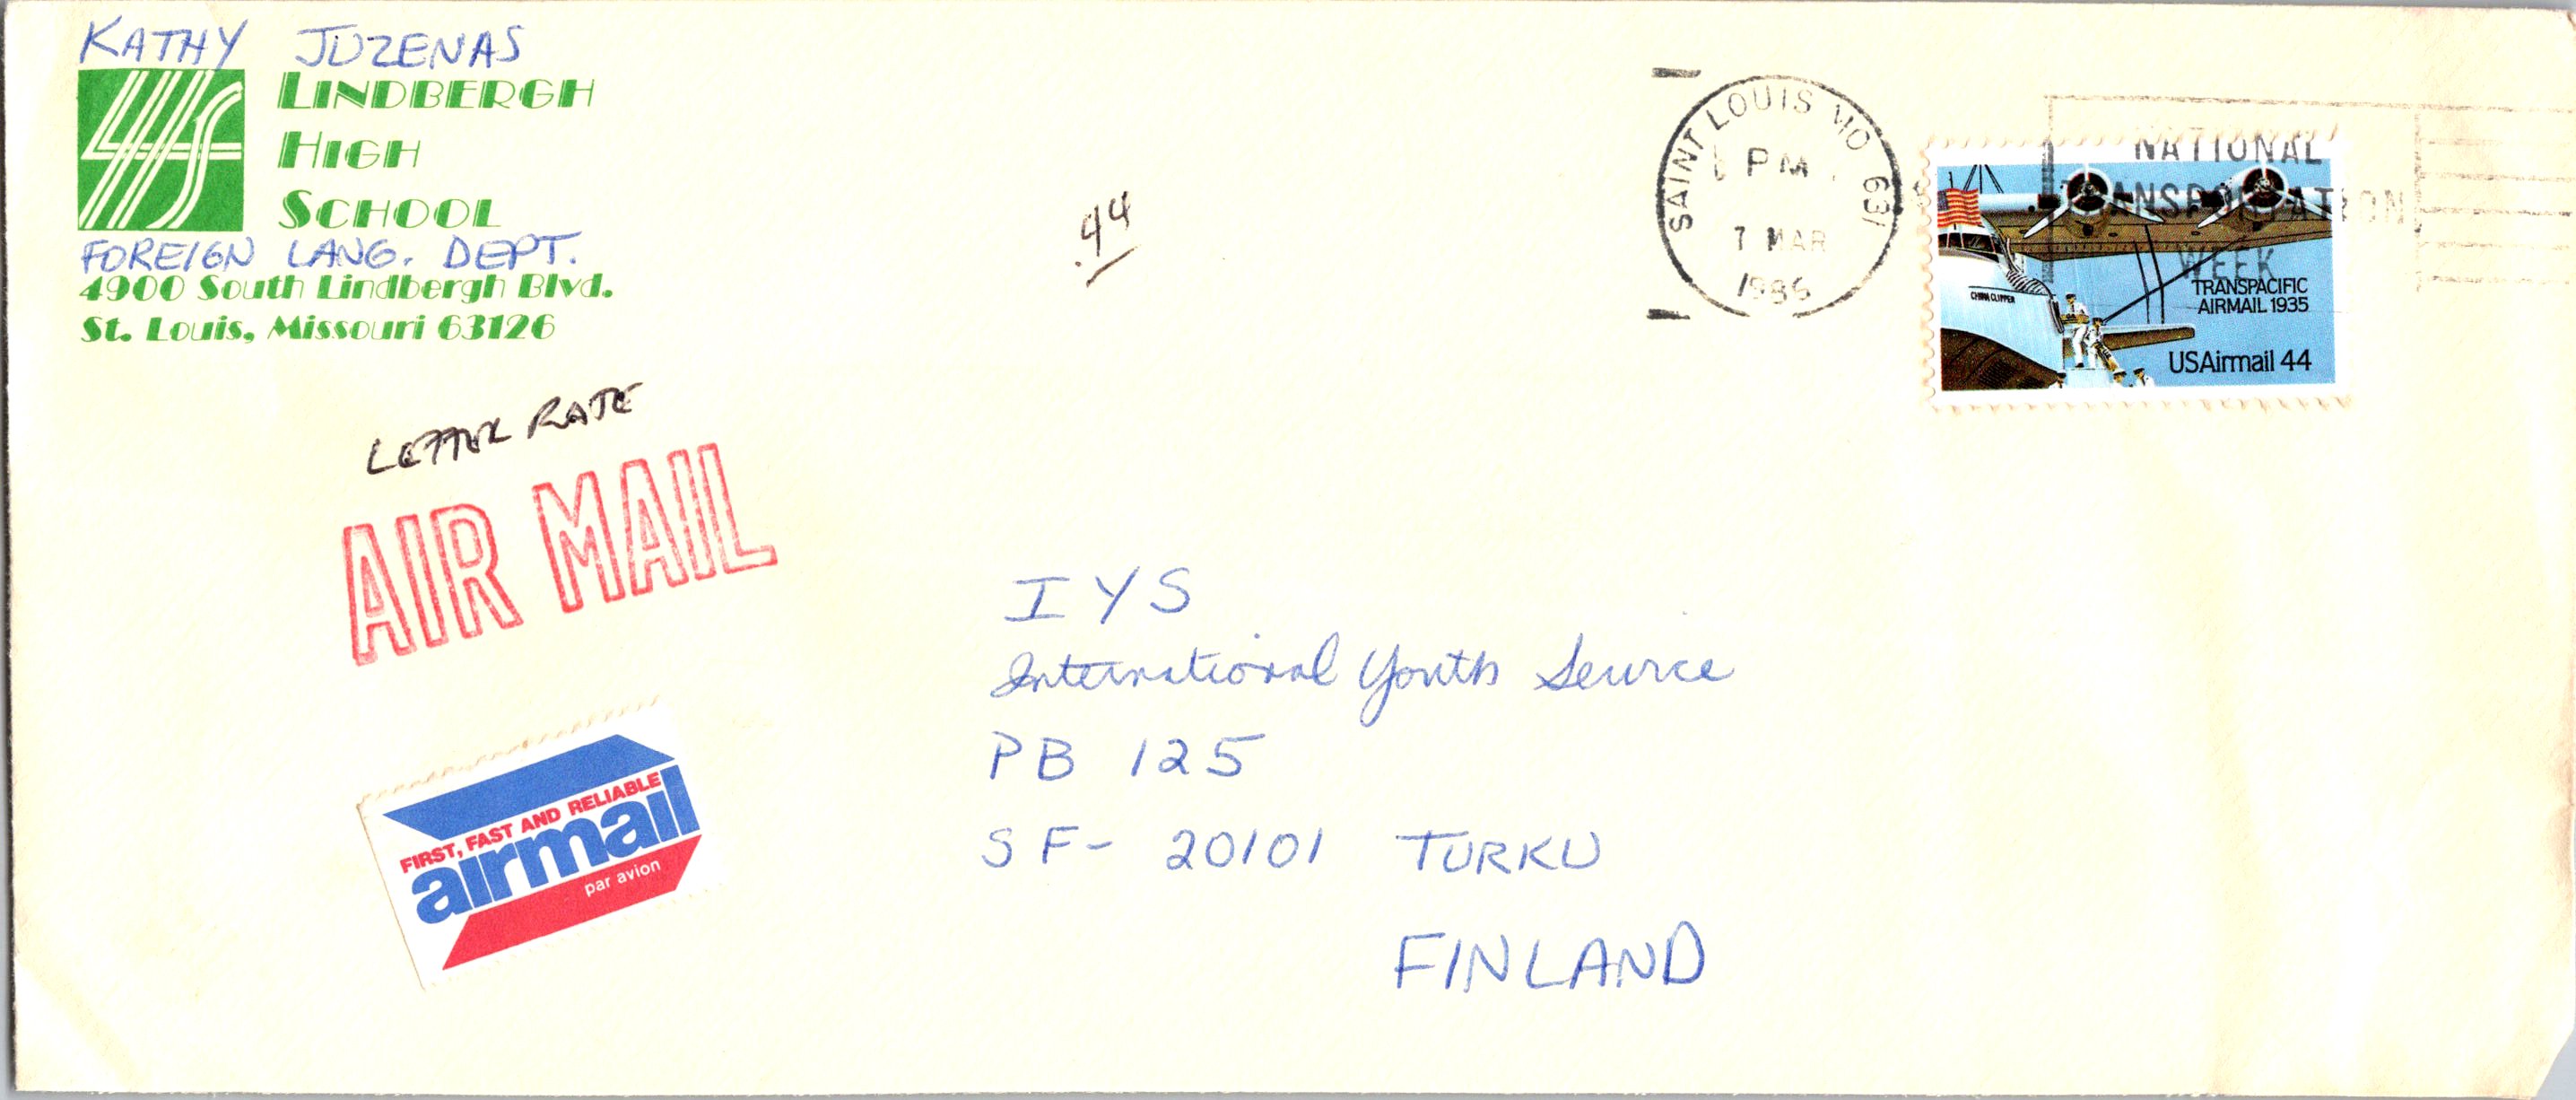 KATHY JUZENAS
LHS
LINDBERGH
HIGH
SCHOOL
FOREIGN LANG. DEPT.
4900 South Lindbergh Blvd.
St. Louis, Missouri 63126
.44
SAINT LOUIS MO 631
PM
7 MAR
1986
NATIONAL
TRANSPORTATION
WEEK
CHINA CLIPPER
TRANSPACIFIC
AIRMAIL 1935
USAirmail 44
LETTER RATE
AIR MAIL
FIRST, FAST AND RELIABLE
airmail
par avion
IYS
International Youth Service
PB 125
SF- 20101 TURKU
FINLAND